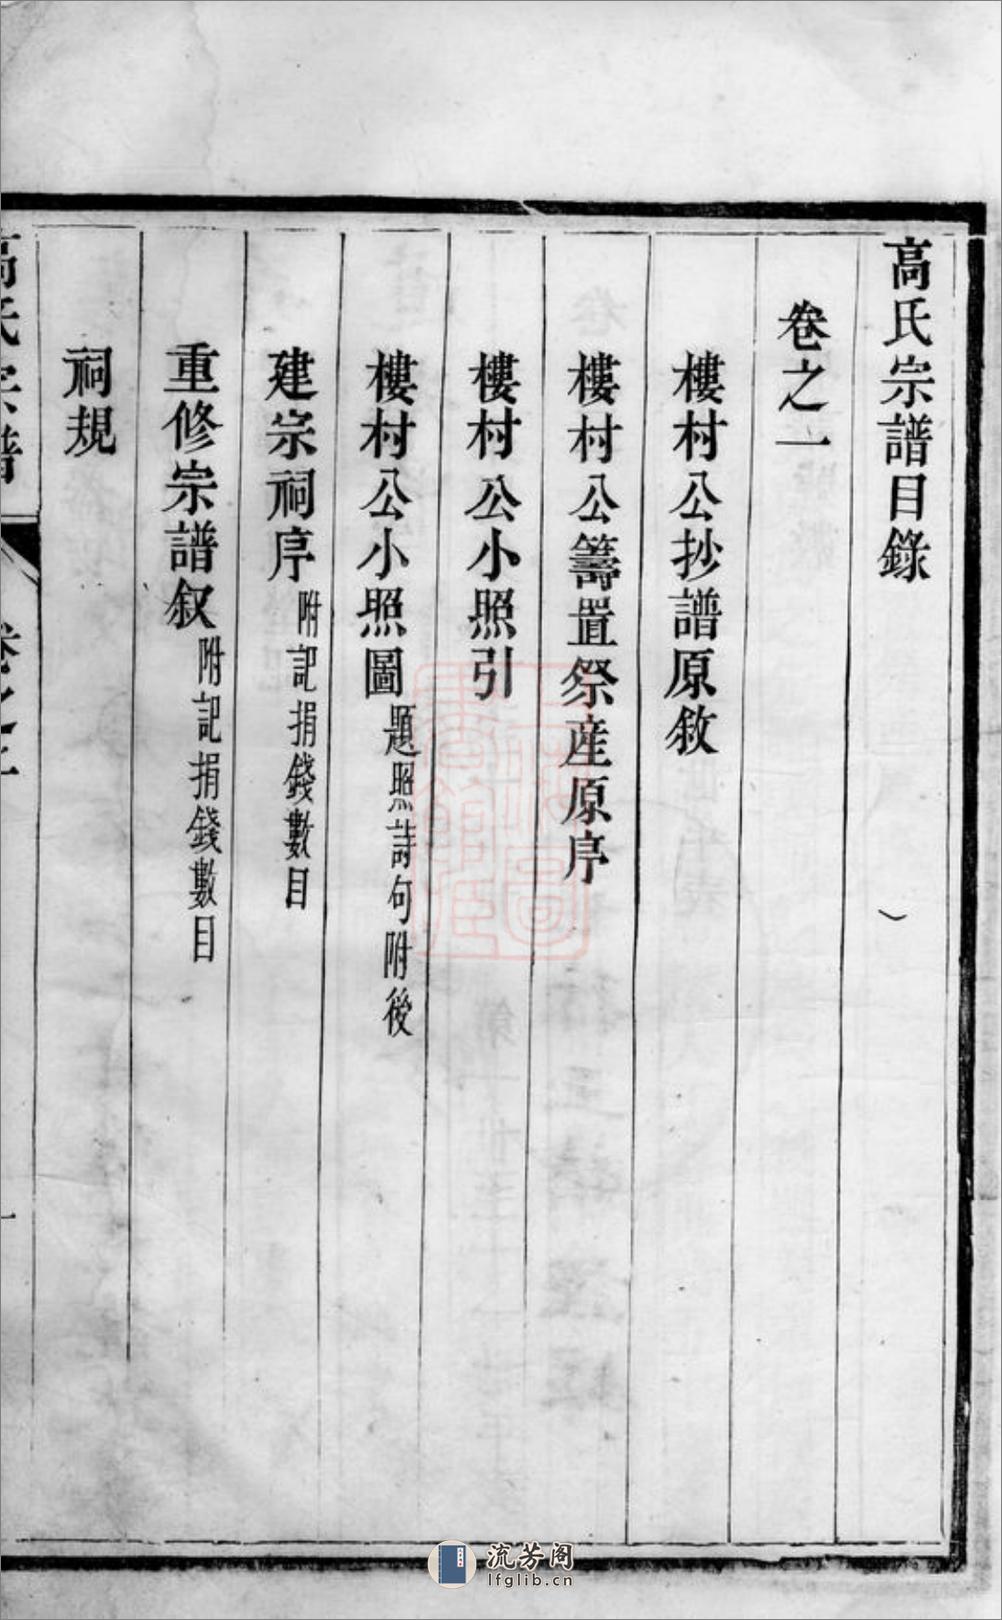 高氏宗譜目錄
卷之一
樓村公抄譜原敘
樓村公籌置祭產原序
樓村公小照引
樓村公小照圖 題照詩句附後
建宗祠序 附記捐錢數目
重修宗譜叙 附記捐錢數目
祠規
高氏宗譜
卷之一
一
流芳阁
lfglib.cn